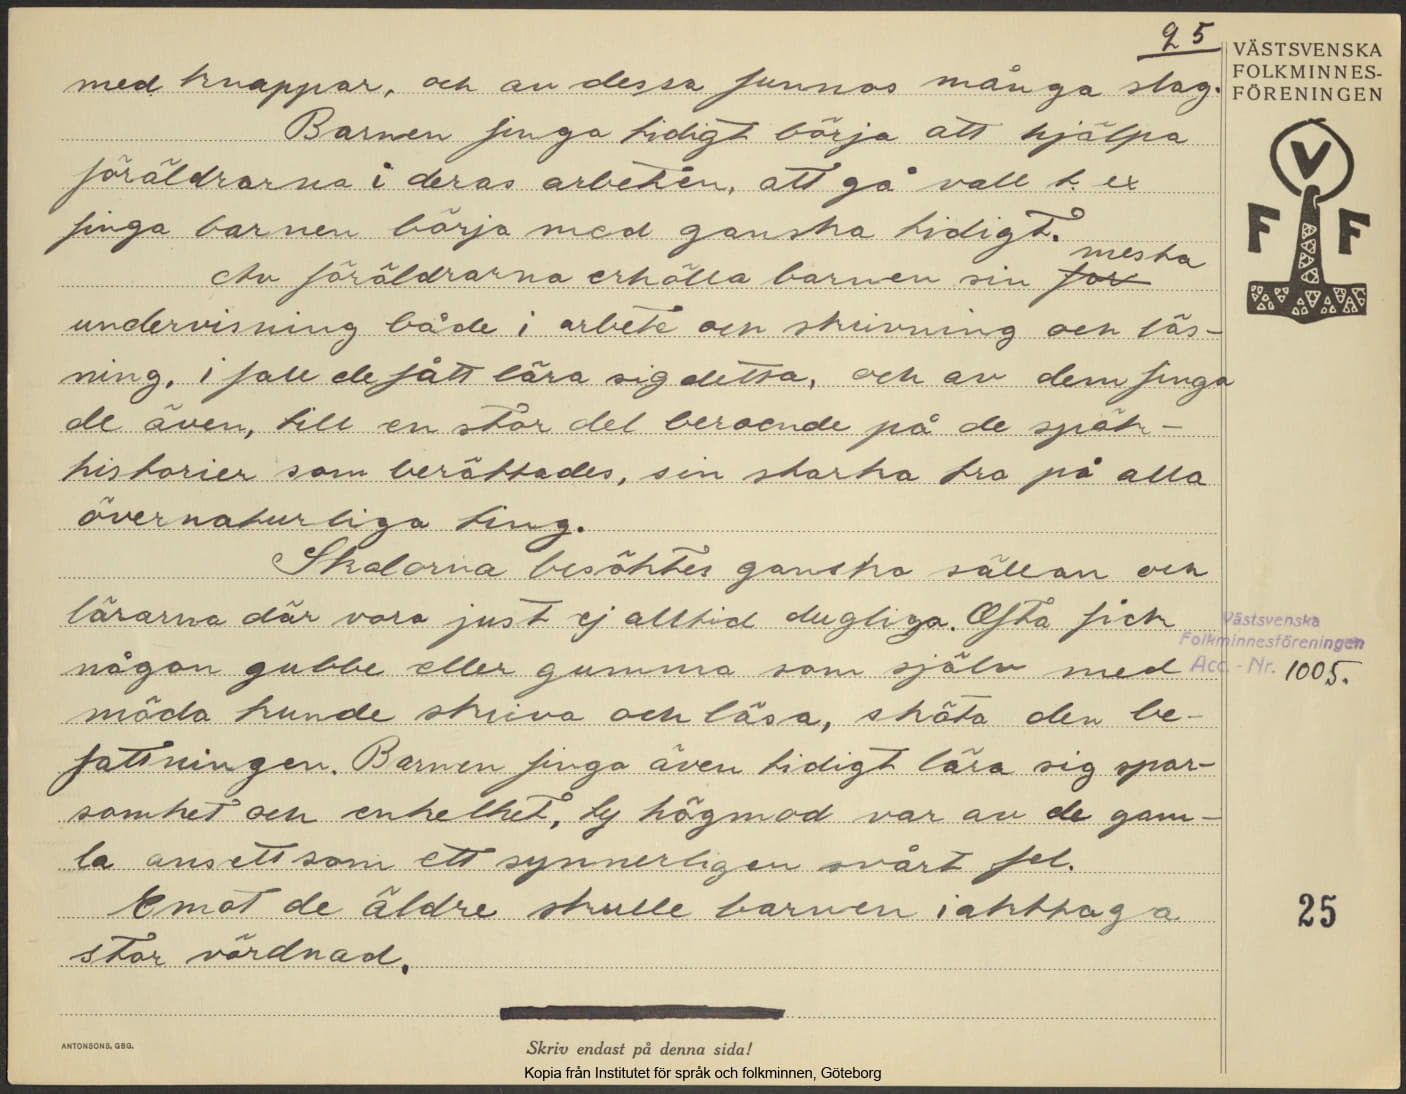 25
VÄSTSVENSKA
FOLKMINNES-
FÖRENINGEN
V
F F
med knappar, och av dessa funnos många slag.
Barnen finga tidigt börja att hjälpa
föräldrarna i deras arbeten, att gå vall t. ex
finga barnen börja med ganska tidigt.
mesta
Av föräldrarna erhölla barnen sin för
undervisning både i arbete och skrivning och läs-
ning, i fall de fått lära sig detta, och av dem finga
de även, till en stor del beroende på de spök-
historier som berättades, sin starka tro på alla
övernaturliga ting.
Skolorna besöktes ganska sällan och
lärarna där voro just ej alltid dugliga. Ofta fick
någon gubbe eller gumma som själv med
möda kunde skriva och läsa, sköta den be-
fattningen. Barnen finga även tidigt lära sig spar-
samhet och enkelhet, ty högmod var av de gam-
la ansett som ett synnerligen svårt fel.
Emot de äldre skulle barnen iakttaga
stor vördnad.
Västsvenska
Folkminnesföreningen
Acc. - Nr. 1005.
25
ANTONSONS, GBG.
Skriv endast på denna sida!
Kopia från Institutet för språk och folkminnen, Göteborg